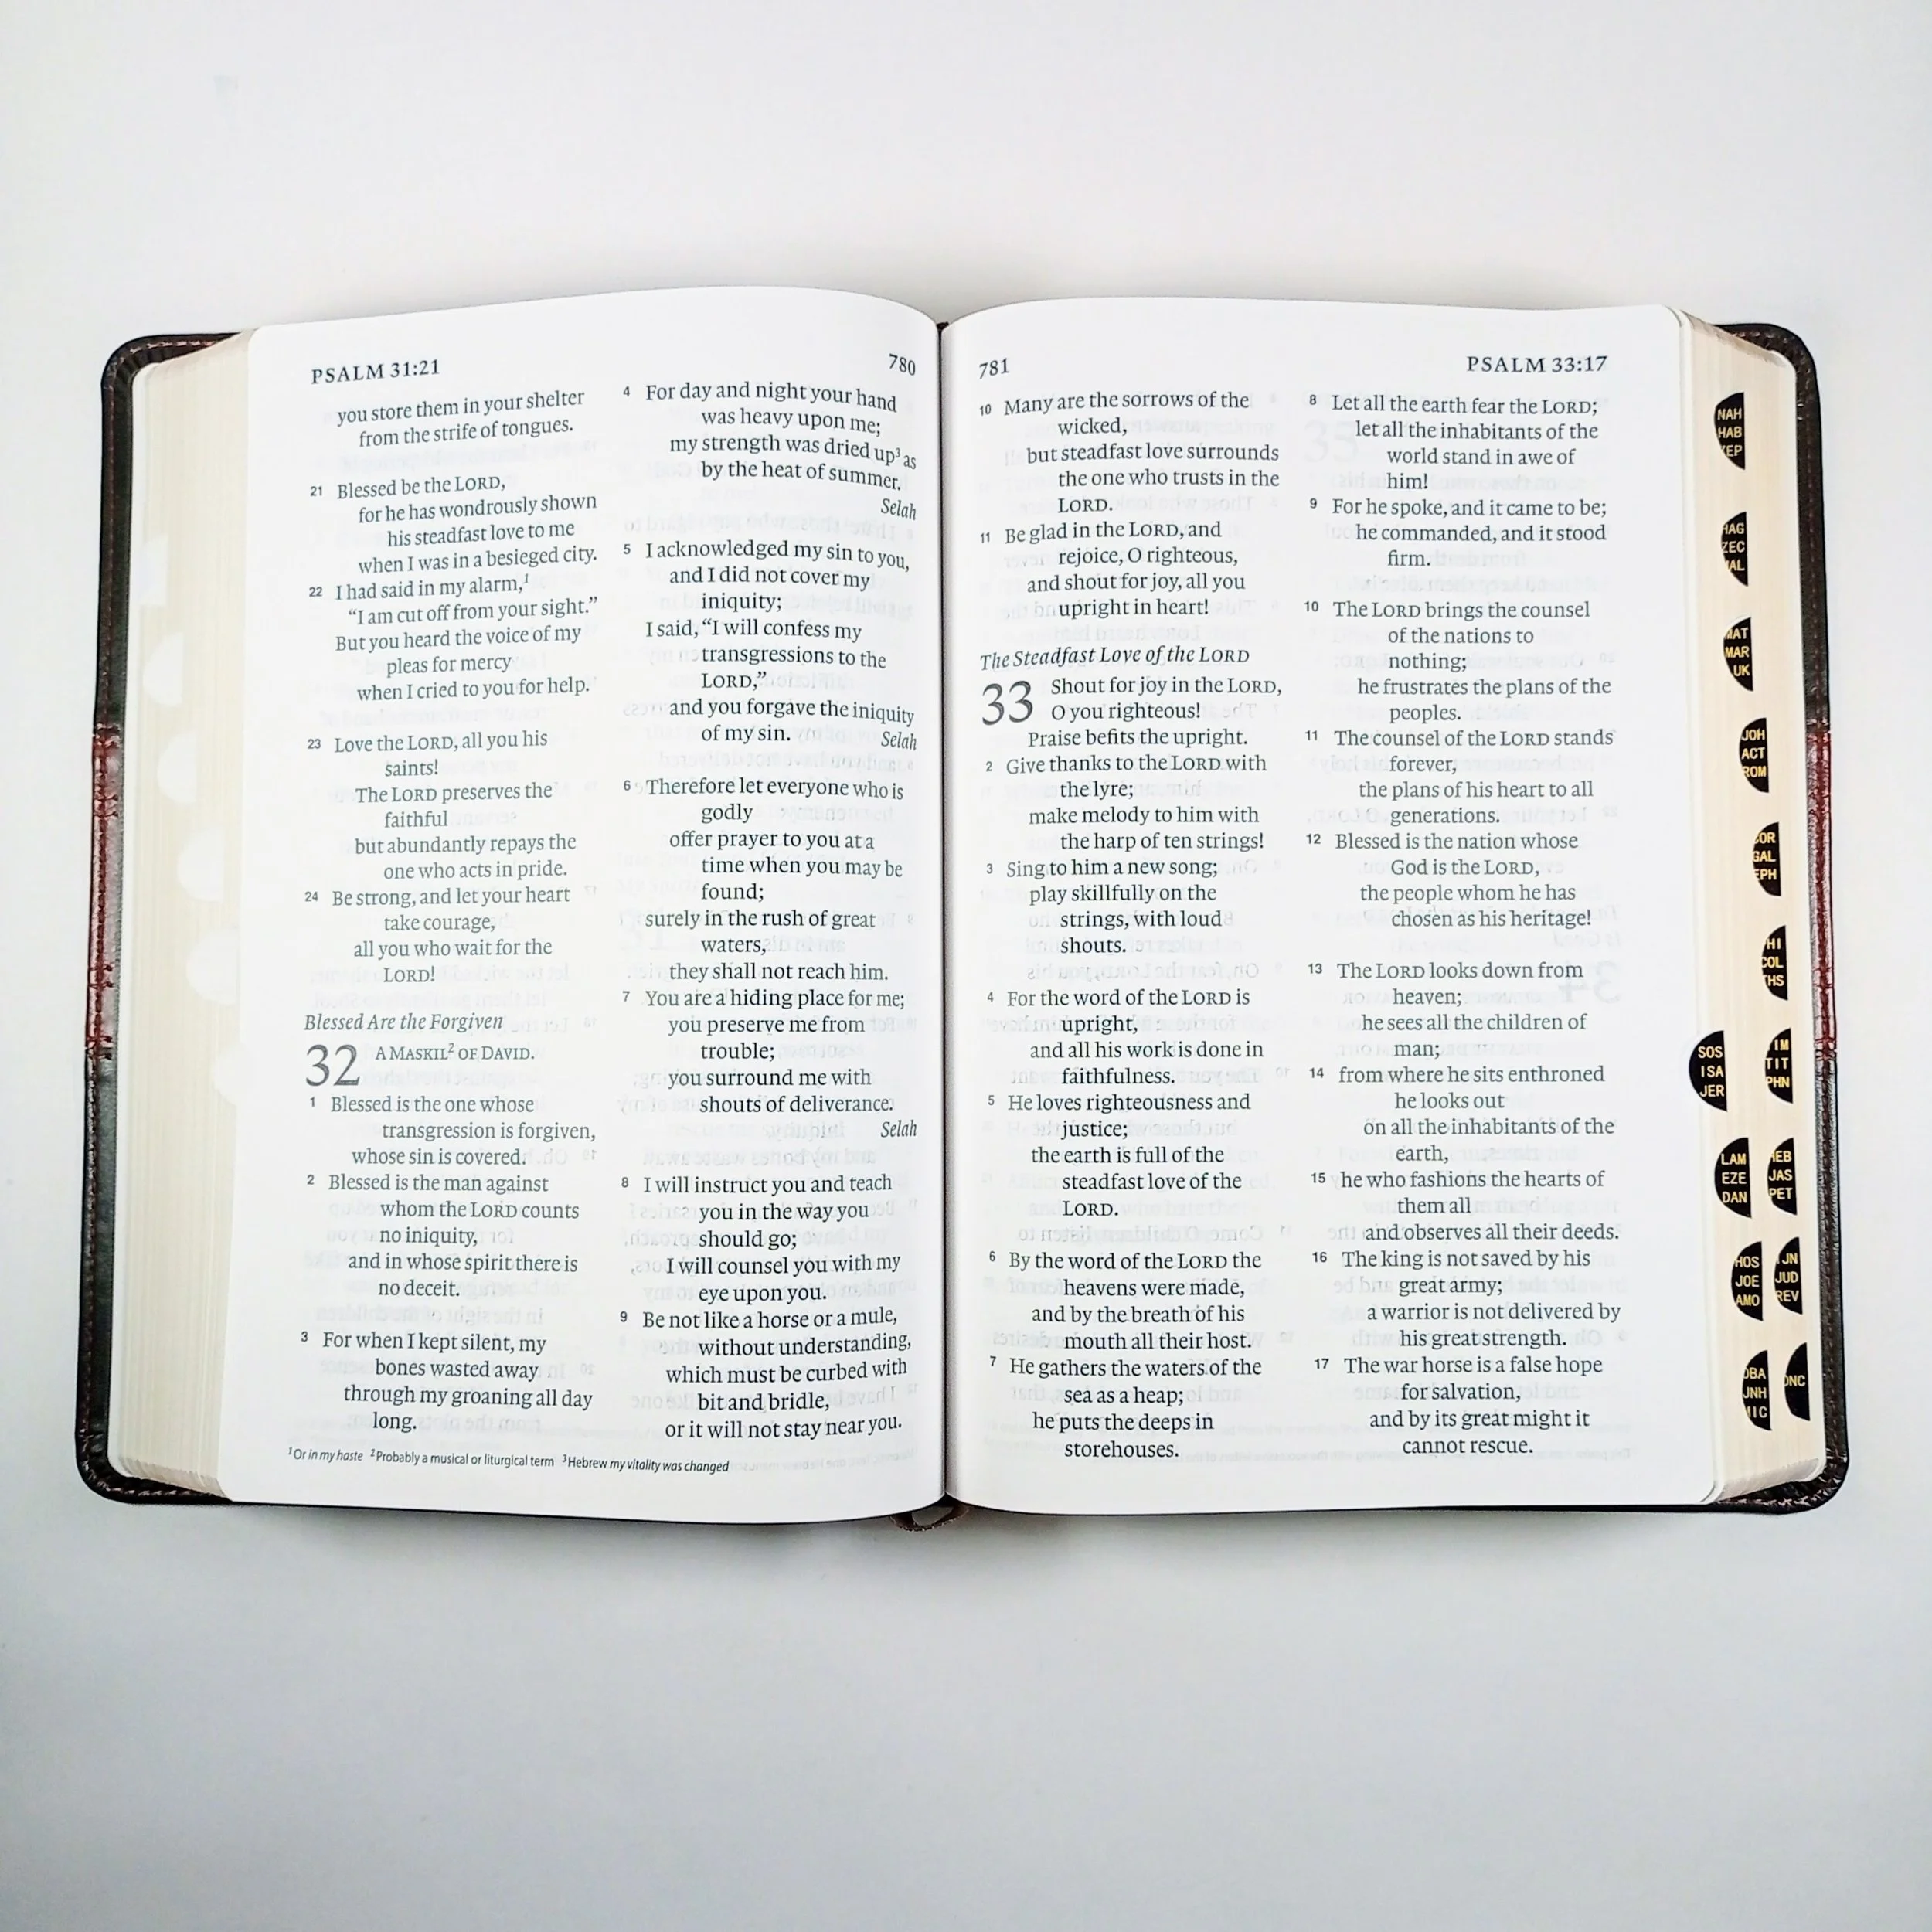 PSALM 31:21
780
you store them in your shelter
from the strife of tongues.
21 Blessed be the LORD,
for he has wondrously shown
his steadfast love to me
when I was in a besieged city.
22 I had said in my alarm,¹
“I am cut off from your sight.”
But you heard the voice of my
pleas for mercy
when I cried to you for help.
23 Love the LORD, all you his
saints!
The LORD preserves the
faithful
but abundantly repays the
one who acts in pride.
24 Be strong, and let your heart
take courage,
all you who wait for the
LORD!
Blessed Are the Forgiven
32 A MASKIL² OF DAVID.
1 Blessed is the one whose
transgression is forgiven,
whose sin is covered.
2 Blessed is the man against
whom the LORD counts
no iniquity,
and in whose spirit there is
no deceit.
3 For when I kept silent, my
bones wasted away
through my groaning all day
long.
4 For day and night your hand
was heavy upon me;
my strength was dried up³ as
by the heat of summer.
Selah
5 I acknowledged my sin to you,
and I did not cover my
iniquity;
I said, “I will confess my
transgressions to the
LORD,”
and you forgave the iniquity
of my sin. Selah
6 Therefore let everyone who is
godly
offer prayer to you at a
time when you may be
found;
surely in the rush of great
waters,
they shall not reach him.
7 You are a hiding place for me;
you preserve me from
trouble;
you surround me with
shouts of deliverance.
Selah
8 I will instruct you and teach
you in the way you
should go;
I will counsel you with my
eye upon you.
9 Be not like a horse or a mule,
without understanding,
which must be curbed with
bit and bridle,
or it will not stay near you.
¹Or in my haste ²Probably a musical or liturgical term ³Hebrew my vitality was changed
781
PSALM 33:17
10 Many are the sorrows of the
wicked,
but steadfast love surrounds
the one who trusts in the
LORD.
11 Be glad in the LORD, and
rejoice, O righteous,
and shout for joy, all you
upright in heart!
The Steadfast Love of the LORD
33 Shout for joy in the LORD,
O you righteous!
Praise befits the upright.
2 Give thanks to the LORD with
the lyre;
make melody to him with
the harp of ten strings!
3 Sing to him a new song;
play skillfully on the
strings, with loud
shouts.
4 For the word of the LORD is
upright,
and all his work is done in
faithfulness.
5 He loves righteousness and
justice;
the earth is full of the
steadfast love of the
LORD.
6 By the word of the LORD the
heavens were made,
and by the breath of his
mouth all their host.
7 He gathers the waters of the
sea as a heap;
he puts the deeps in
storehouses.
8 Let all the earth fear the LORD;
let all the inhabitants of the
world stand in awe of
him!
9 For he spoke, and it came to be;
he commanded, and it stood
firm.
10 The LORD brings the counsel
of the nations to
nothing;
he frustrates the plans of the
peoples.
11 The counsel of the LORD stands
forever,
the plans of his heart to all
generations.
12 Blessed is the nation whose
God is the LORD,
the people whom he has
chosen as his heritage!
13 The LORD looks down from
heaven;
he sees all the children of
man;
14 from where he sits enthroned
he looks out
on all the inhabitants of the
earth,
15 he who fashions the hearts of
them all
and observes all their deeds.
16 The king is not saved by his
great army;
a warrior is not delivered by
his great strength.
17 The war horse is a false hope
for salvation,
and by its great might it
cannot rescue.
NAH
HAB
ZEP
HAG
ZEC
MAT
MAR
JOH
ACT
ROM
GAL
EPH
COL
SOS
ISA
JER
TIT
PHN
LAM
EZE
DAN
JAS
PET
HOS
JOE
AMO
JN
JUD
REV
OBA
JNH